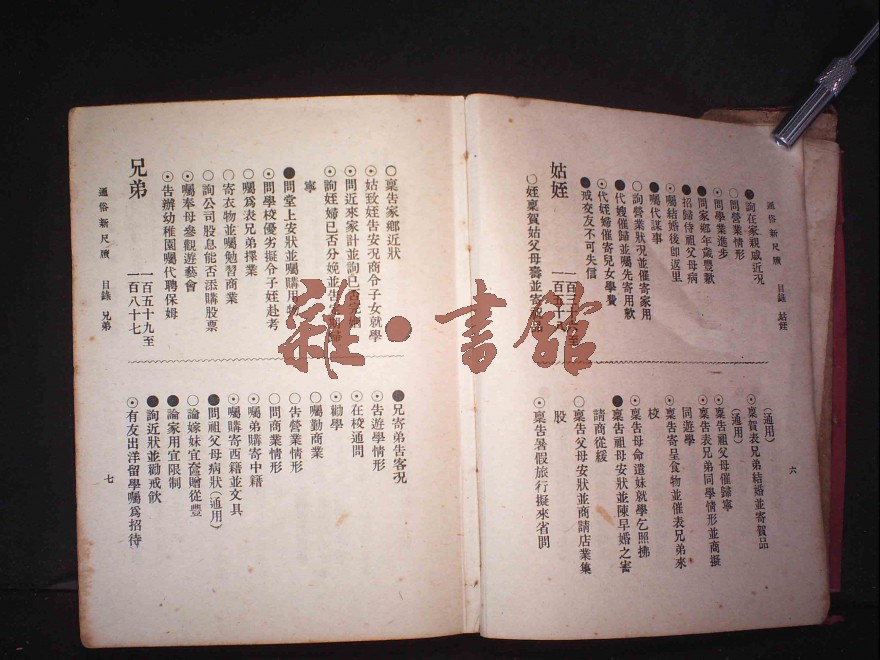 通俗新尺牘　目錄　姑姪
●詢在家親戚近况
○問營業情形
⊙問學業進步
●問家鄉年歲豐歉
●招歸侍祖父母病
⊙囑結婚後卽返里
⊙囑代謀事
⊙詢營業狀况並催寄家用
●代嫂催歸並囑先寄用欵
⊙代姪婦催寄兒女學費
●戒交友不可失信
姑姪
一百三十六至
一百五十八
○姪稟賀姑父母壽並寄祝品
⊙稟賀表兄弟結婚並寄賀品
(通用)
⊙稟告祖父母催歸寧
(通用)
●稟告表兄弟同學情形並商擬
同遊學
⊙稟告寄呈食物並催表兄弟來
校
⊙稟告母命遣妹就學乞照拂
●稟告祖母安狀並陳早婚之害
請商從緩
○稟告父母安狀並商請店業集
股
⊙稟告暑假旅行擬來省問
六
○稟告家鄉近狀
⊙姑致姪告安况商令子女就學
⊙問近來家計並詢已否完
⊙詢姪婦已否分娩並告
寧
●問堂上安狀並囑購用物
⊙問學校優劣擬令子姪赴考
○囑爲表兄弟擇業
○寄衣物並囑勉習商業
○詢公司股息能否添購股票
⊙囑奉母參觀遊藝會
⊙告辦幼稚園囑代聘保姆
兄弟
一百五十九至
一百八十七
通俗新尺牘　目錄　兄弟
●兄寄弟告客况
⊙告遊學情形
⊙在校通問
⊙勸學
○囑勤商業
○告營業情形
○問商業情形
⊙囑弟購寄中籍
⊙囑購寄西籍並文具
●問祖父母病狀(通用)
○論嫁妹宜奩贈從豐
●論家用宜限制
●詢近狀並勸戒飲
⊙有友出洋留學囑爲招待
七
雜·書館